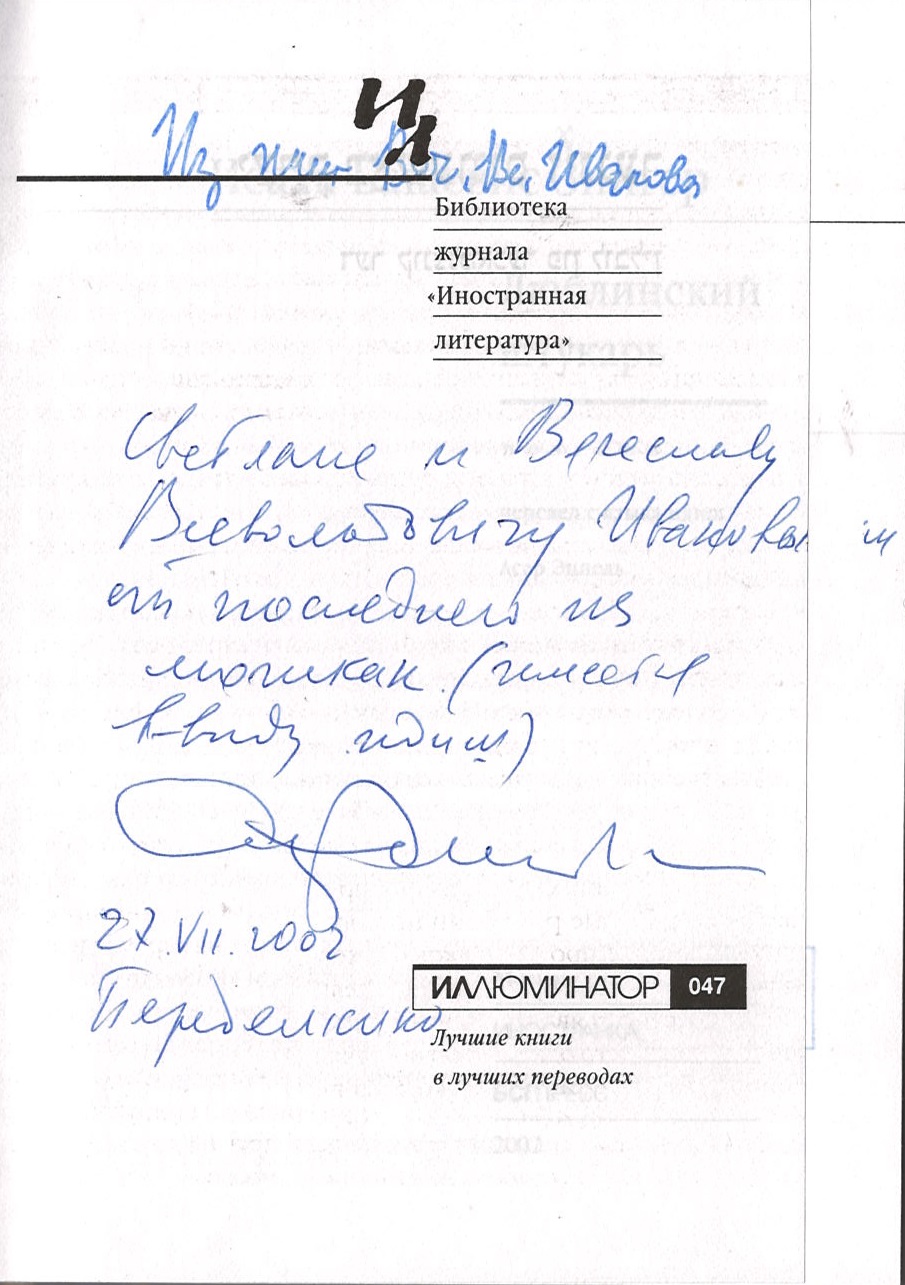 ИЛ
Из книг Вяч. Вс. Иванова
Библиотека
журнала
«Иностранная
литература»
Светлане и Вячеславу
Всеволодовичу Ивановым
от последнего из
могикан (имеется
в виду идиш)
27.VII.2002
Переделкино
ИЛЛЮМИНАТОР 047
Лучшие книги
в лучших переводах